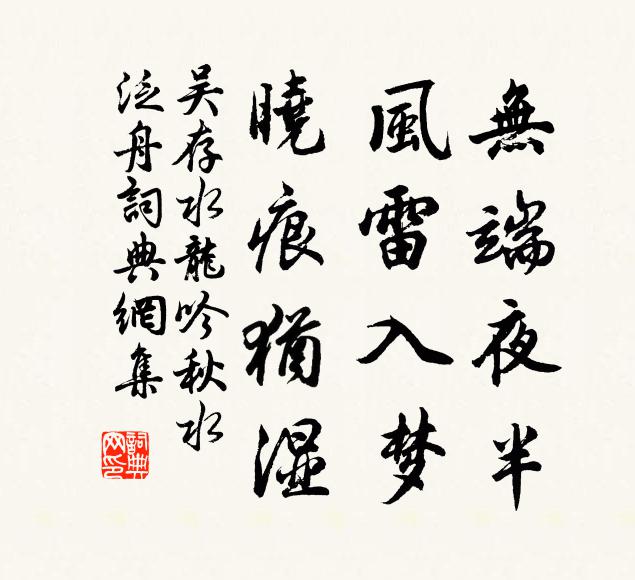 無端夜半
風雷入梦
曉痕猶湿
吴存水龍吟秋水
泛舟詞典網集
詞典网印